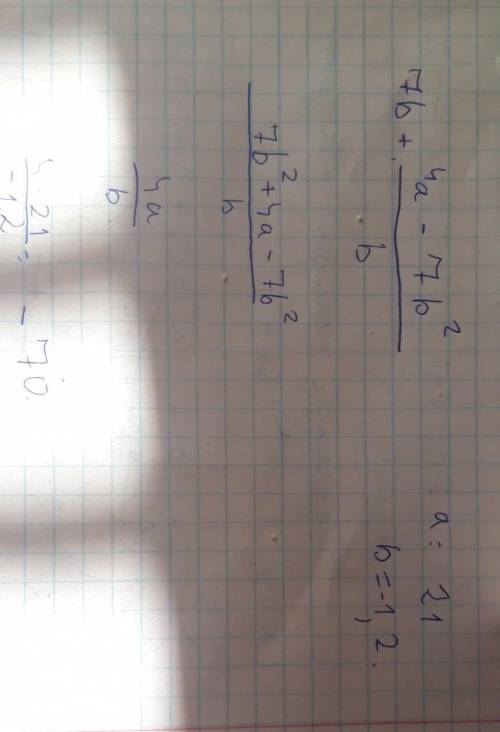 7b + (4a - 7b²)/b    a = 21
b = -1,2.
(7b² + 4a - 7b²)/b
4a/b
(4·21)/(-1,2) = -70.